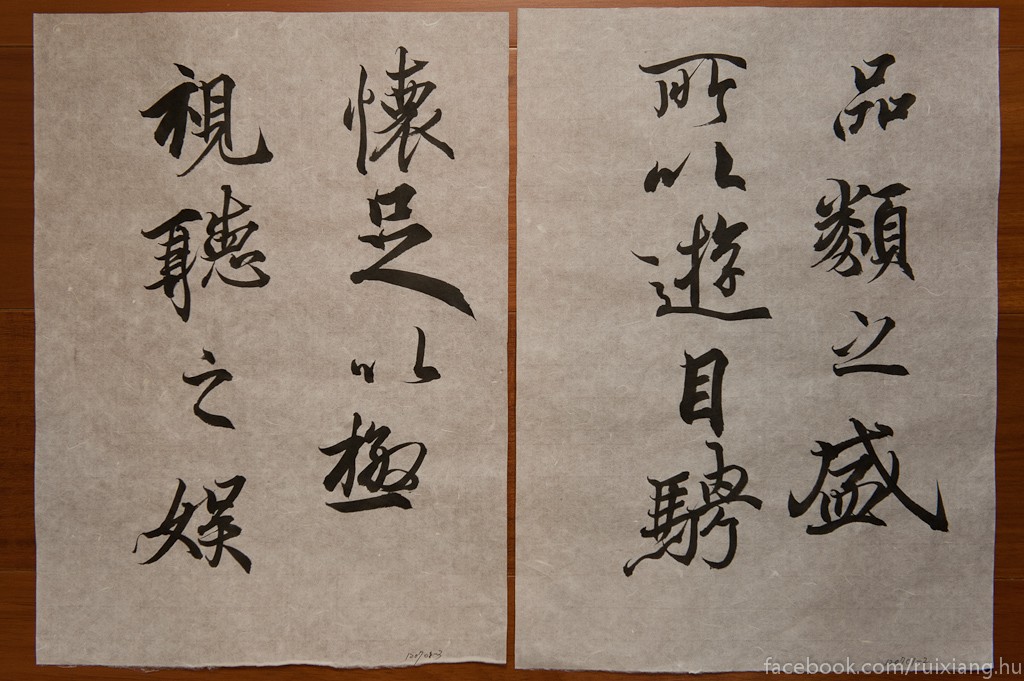 品類之盛
所以遊目騁
懷足以極
視聽之娛
facebook.com/ruixiang.hu